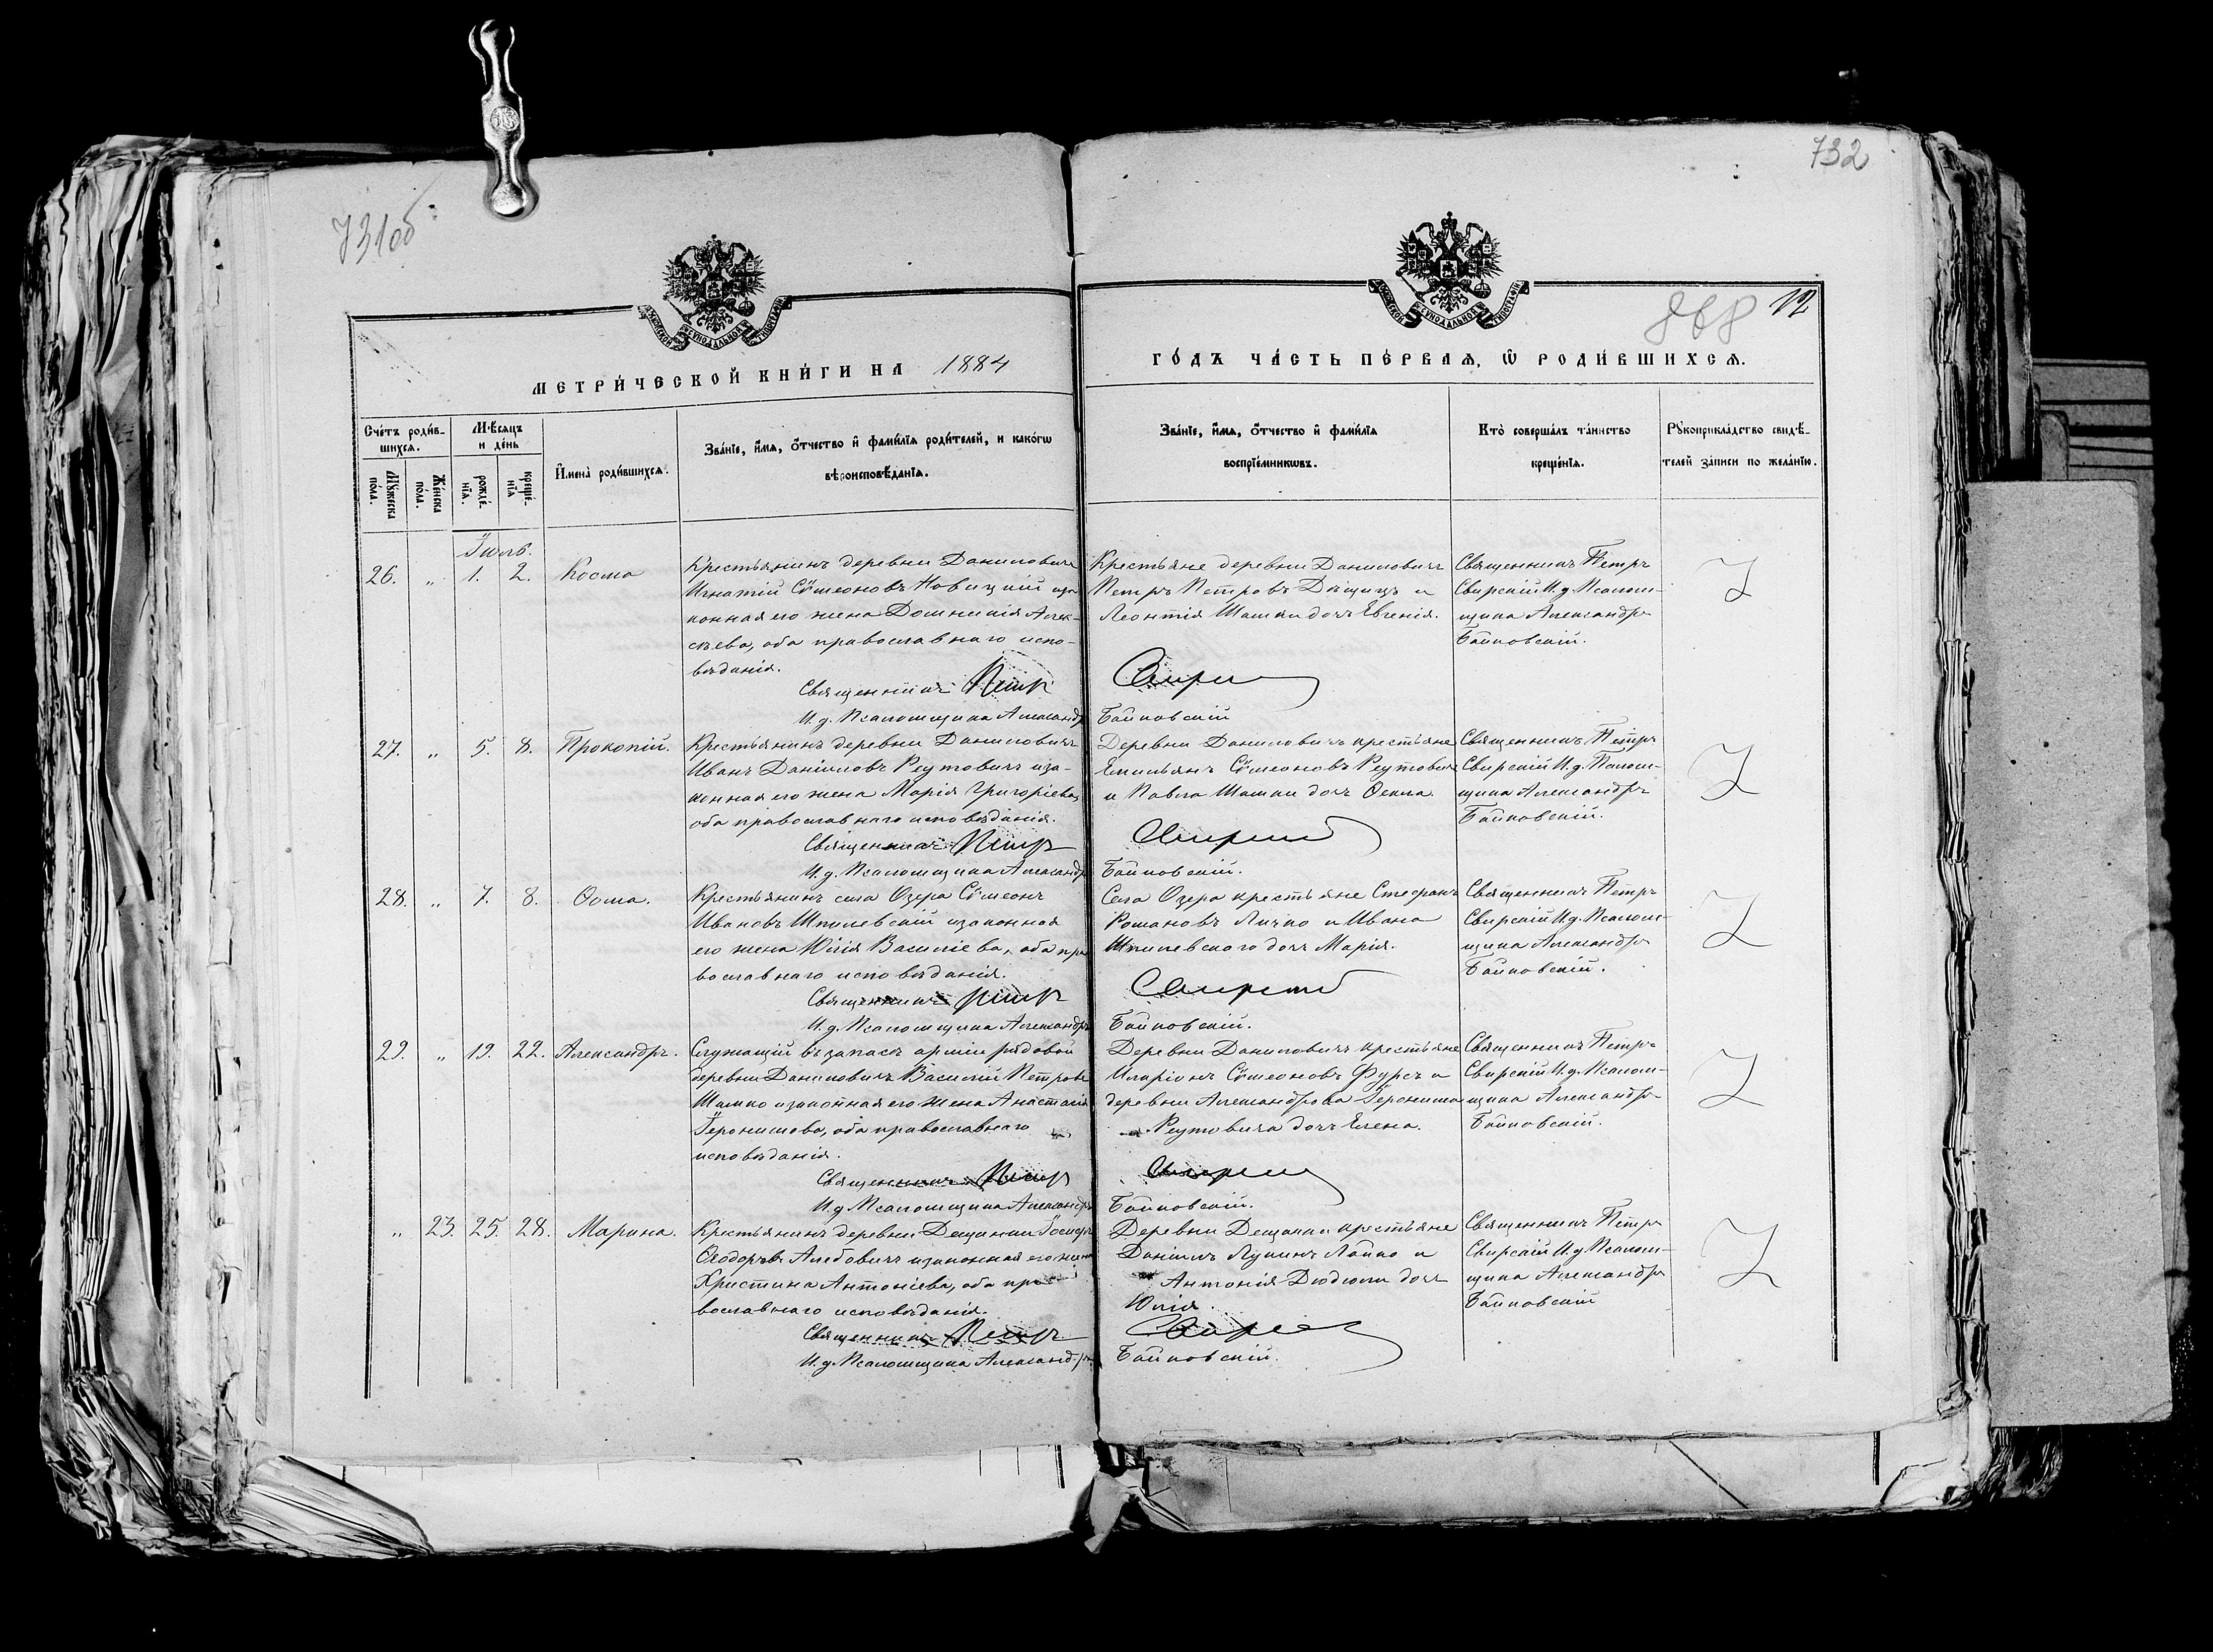 731об
732
868 12
МЕТРИ́ЧЕСКОЙ КНИ́ГИ НА 1884
ГО́ДЪ ЧА́СТЬ ПЕ́РВАѦ, Ѡ҆ РОДИ́ВШИХСѦ.
Сче́тъ роди́в-
шихсѧ.
Мѣ́сѧцъ
и де́нь
Мꙋ́жеска
по́ла.
Же́нска
по́ла.
рожде́-
нїѧ.
креще́-
нїѧ
И҆мена̀ роди́вшихсѧ.
Зва́нїе, и҆́мѧ, ѻ҆́тчество и҆ фами́лїѧ роди́телей, и како́гѡ
вѣроисповѣ́данїѧ.
Зва́нїе, и҆́мѧ, ѻ҆́тчество и҆ фами́лїѧ
воспрїе́мникѡвъ.
Кто̀ соверша́лъ та́инство
креще́нїѧ.
Рꙋкоприкла́дство свидѣ́-
телей за́писи по жела́нїю.
Іюль.
26. „ 1. 2. Косма
Крестьянинъ деревни Даниловичъ
Игнатій Сѵмеоновъ Новицкій и за
конная его жена Домникія Алек-
сѣева, оба православнаго испо-
вѣданія.
Священникъ Петръ
И. д. Псаломщика Александръ
Крестьяне деревни Даниловичъ
Петръ Петровъ и
Леонтія Шамки дочь Евгенія.
Свирскій
Байковскій
Священникъ Петръ
Свирскій И. д. Псалом-
щика Александръ
Байковскій.
27. „ 5. 8. Прокопій.
Крестьянинъ деревни Даниловичъ
Иванъ Даніиловъ Реутовичъ и за-
конная его жена Марія Григоріева,
оба православнаго исповѣданія.
Священникъ Петръ
И. д. Псаломщика Александръ
Деревни Даниловичъ крестьяне
Емильянъ Сѵмеоновъ Реутовичъ
и Павла Шамки дочь Ѳекла.
Свирскій
Байковскій.
Священникъ Петръ
Свирскій И. д. Псалом-
щика Александръ
Байковскій.
28. „ 7. 8. Ѳома.
Крестьянинъ села Озера Сѵмеонъ
Ивановъ Шпилевскій и законная
его жена Юлія Василіева, оба пра
вославнаго исповѣданія.
Священникъ Петръ
И. д. Псаломщика Александръ
Села Озера крестьяне Стефанъ
Романовъ Личко и Ивана
Шпилевскаго дочь Марія.
Свирскій
Байковскій.
Священникъ Петръ
Свирскій И. д. Псалом-
щика Александръ
Байковскій.
29. „ 19. 22. Александръ.
Служащій въ запасѣ арміи рядовой
деревни Даниловичъ Василій Петровъ
Шамко и законная его жена Анастасія
Іеронимова, оба православнаго
исповѣданія.
Священникъ Петръ
И. д. Псаломщика Александръ
Деревни Даниловичъ крестьяне
Иларіонъ Сѵмеоновъ Фурсъ и
деревни Александрова Іеронима
Реутовича дочь Елена.
Свирскій
Байковскій.
Священникъ Петръ
Свирскій И. д. Псалом-
щика Александръ
Байковскій.
„ 23. 25. 28. Марина.
Крестьянинъ деревни Дещанки Іосифъ
Ѳеодоровъ Алебовичъ и законная его жена
Христина Антоніева, оба пра
вославнаго исповѣданія.
Священникъ Петръ
И. д. Псаломщика Александръ
Деревни Дещанки крестьяне
Даніилъ Лукинъ Лойко и
Антонія Дюдюли дочь
Юлія.
Свирскій
Байковскій.
Священникъ Петръ
Свирскій И. д. Псалом-
щика Александръ
Байковскій